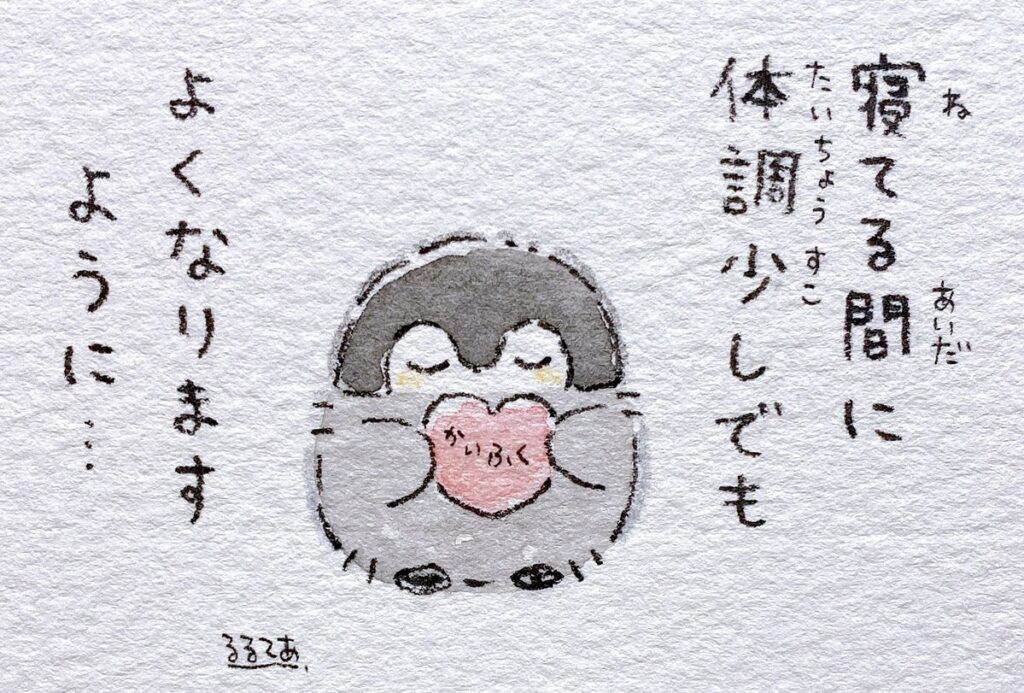 寝てる間に
ね
あいだ
体調少しでも
たいちょうすこ
よくなります
ように…
かいふく
るるてあ.